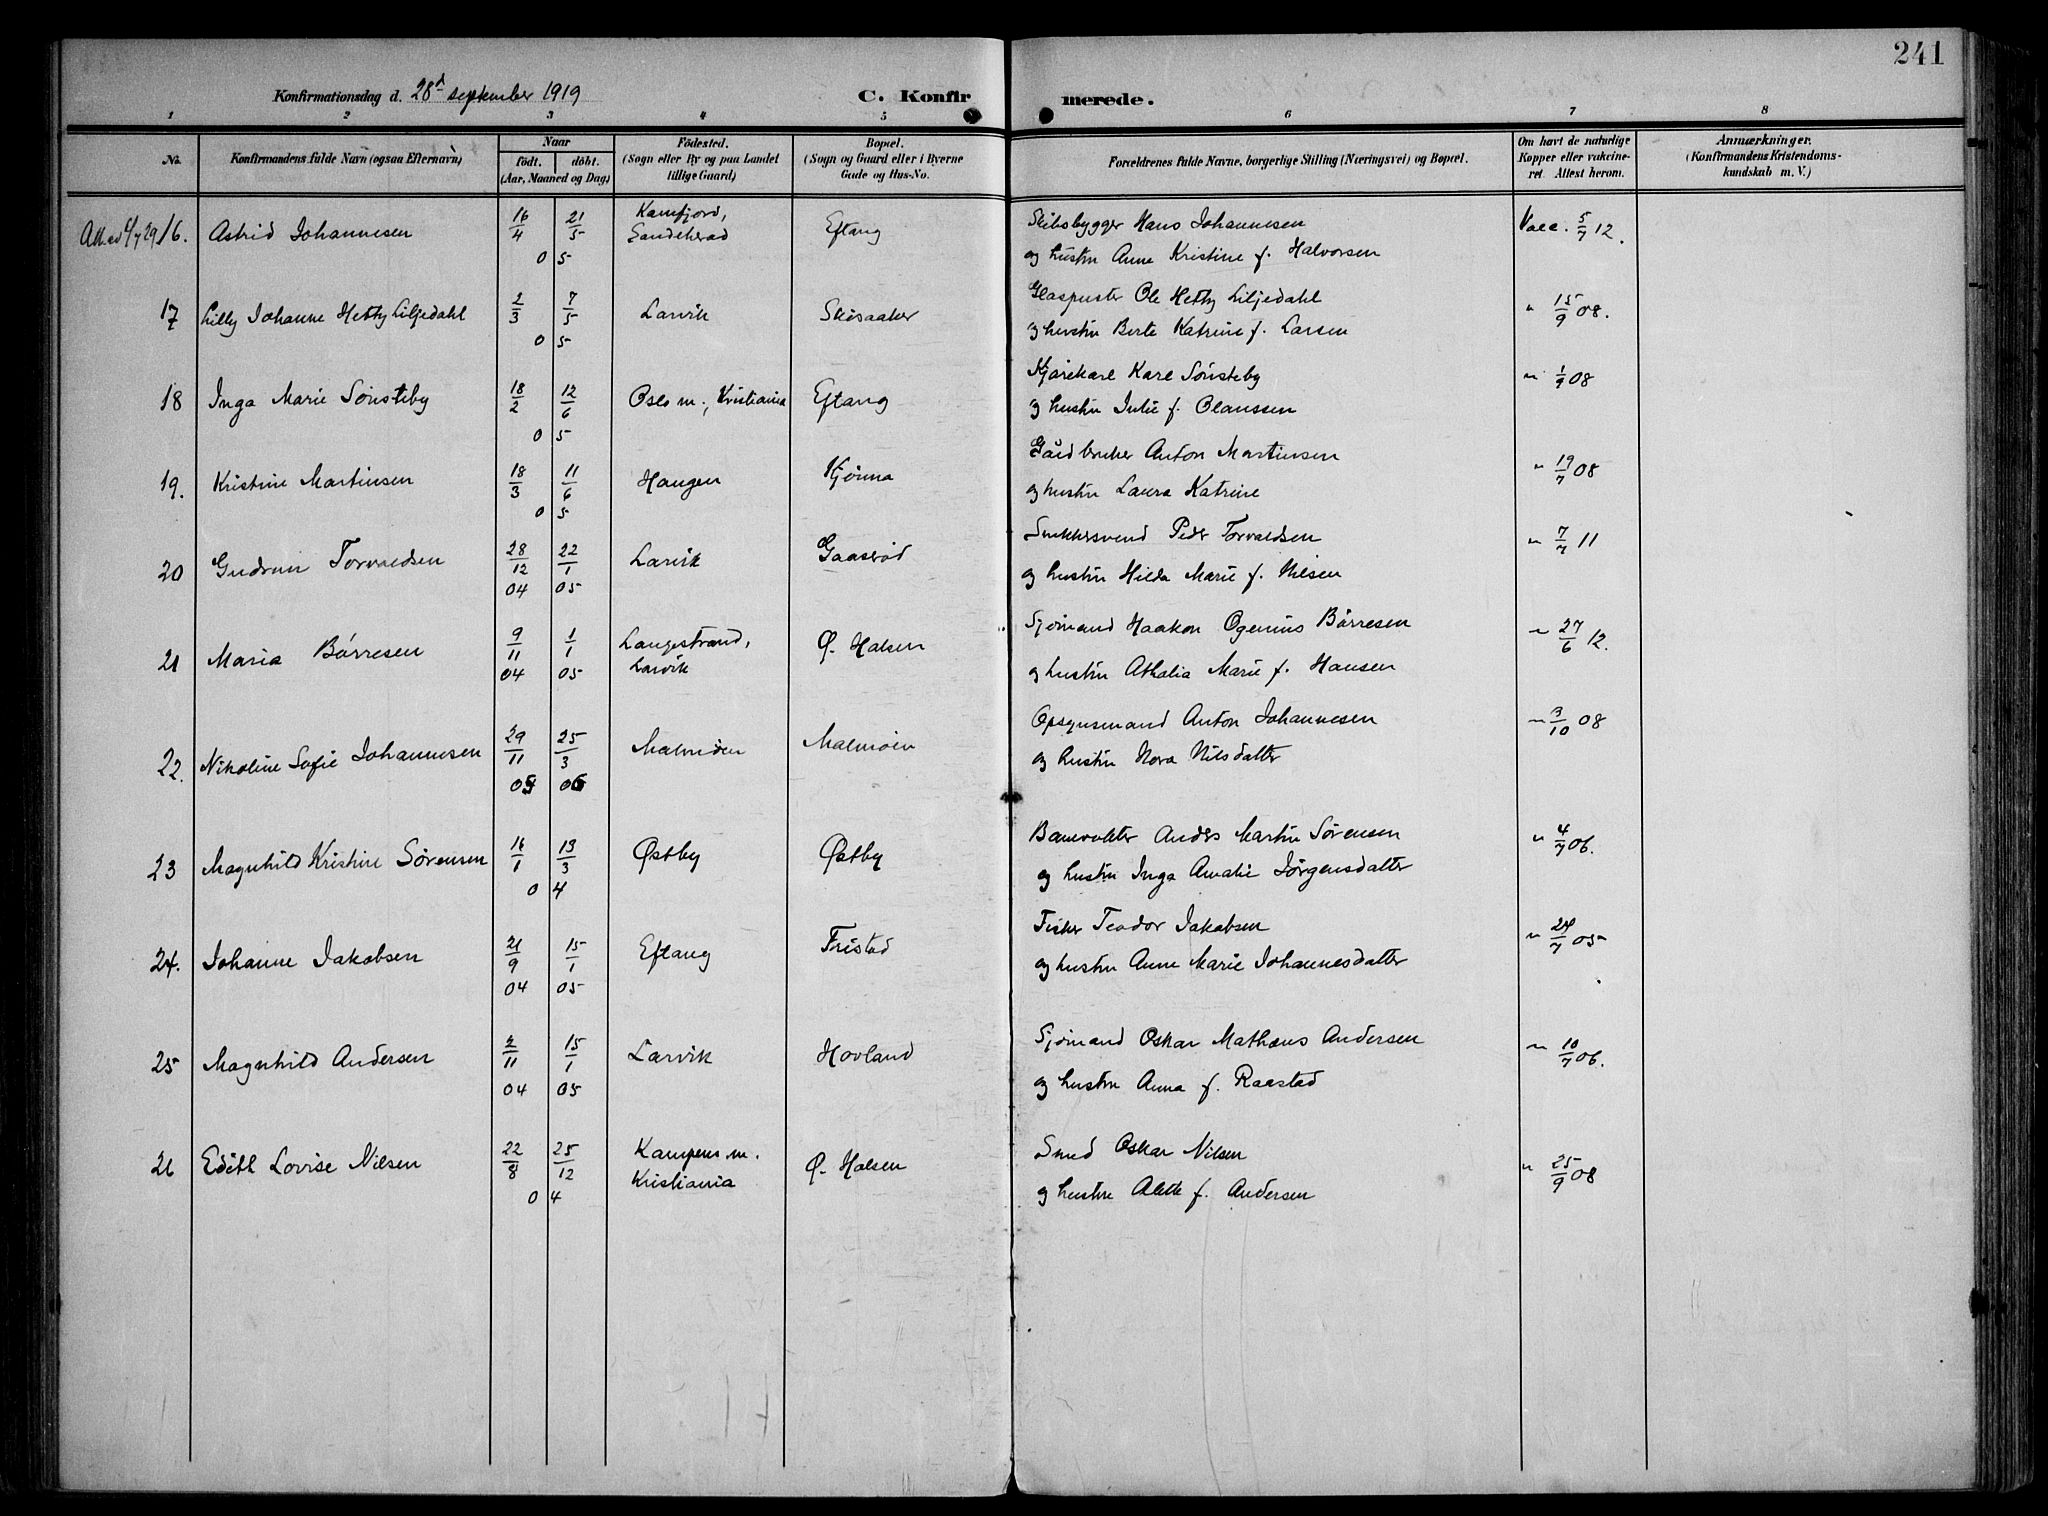 241
Konfirmationsdag d. 28d september 1919
C. Konfirmerede.
1 2 3 4 5 6 7 8
No. Konfirmandens fulde Navn (ogsaa Efternavn) Naar født. døbt. (Aar, Maaned og Dag) Fødested. (Sogn eller By og paa Landet tillige Gaard) Bopæl. (Sogn og Gaard eller i Byerne Gade og Hus-No. Forældrenes fulde Navne, borgerlige Stilling (Næringsvei) og Bopæl. Om havt de naturlige Kopper eller vakcineret. Attest herom. Anmærkninger. (Konfirmandens Kristendomskundskab m. V.)
16. Astrid Johannesen 16/4 21/5 05 Kamfjord, Sandeherad Eftang Skibsbygger Hans Johannesen Vacc. 5/7 12.
og hustru Anne Kristine f. Halvorsen
17 Lilly Johanne Hetty Liljedahl 2/3 7/5 05 Larvik Skisaaker Glaspuster Ole Hetty Liljedahl " 15/9 08.
og hustru Berte Katrine f. Larsen
18 Inga Marie Sønsteby 18/2 12/6 05 Oslo m., Kristiania Eftang Kjørekarl Karl Sønsteby " 1/9 08
og hustru Julie f. Olaussen
19. Kristine Martinsen 18/3 11/6 05 Haugen Kjønna Gårdbruker Anton Martinsen " 19/7 08
og hustru Laura Katrine
20 Gudrun Torvaldsen 28/12 04 22/1 05 Larvik Gaaserød Snekkersvend Peder Torvaldsen " 7/7 11
og hustru Hilda Marie f. Nilsen
21 Maria Børresen 9/11 04 1/1 05 Langestrand, Larvik Ø. Halsen Sjømand Haakon Ogenius Børresen " 27/6 12.
og hustru Athalia Marie f. Hansen
22. Nikoline Sofie Johannesen 29/11 25/3 Malmøen Malmøen Opsynsmand Anton Johannesen " 3/10 08
og hustru Nora Nilsdatter
23 Magnhild Kristine Sørensen 16/1 13/3 04 Østby Østby Banevokter Anders Martin Sørensen " 4/7 06.
og hustru Inga Amalie Jørgensdatter
24. Johanne Jakobsen 21/9 04 15/1 05 Eftang Fristad Fisker Teodor Jakobsen " 24/7 05
og hustru Anne Marie Johannesdatter
25 Magnhild Andersen 2/11 04 15/1 05 Larvik Hovland Sjømand Oskar Mathæus Andersen " 10/7 06.
og hustru Anna f. Raastad
26 Edith Lovise Nilsen 22/8 25/12 04 Kampens m. Kristiania Ø. Halsen Smed Oskar Nilsen " 25/9 08
og hustru Alette f. Andersen